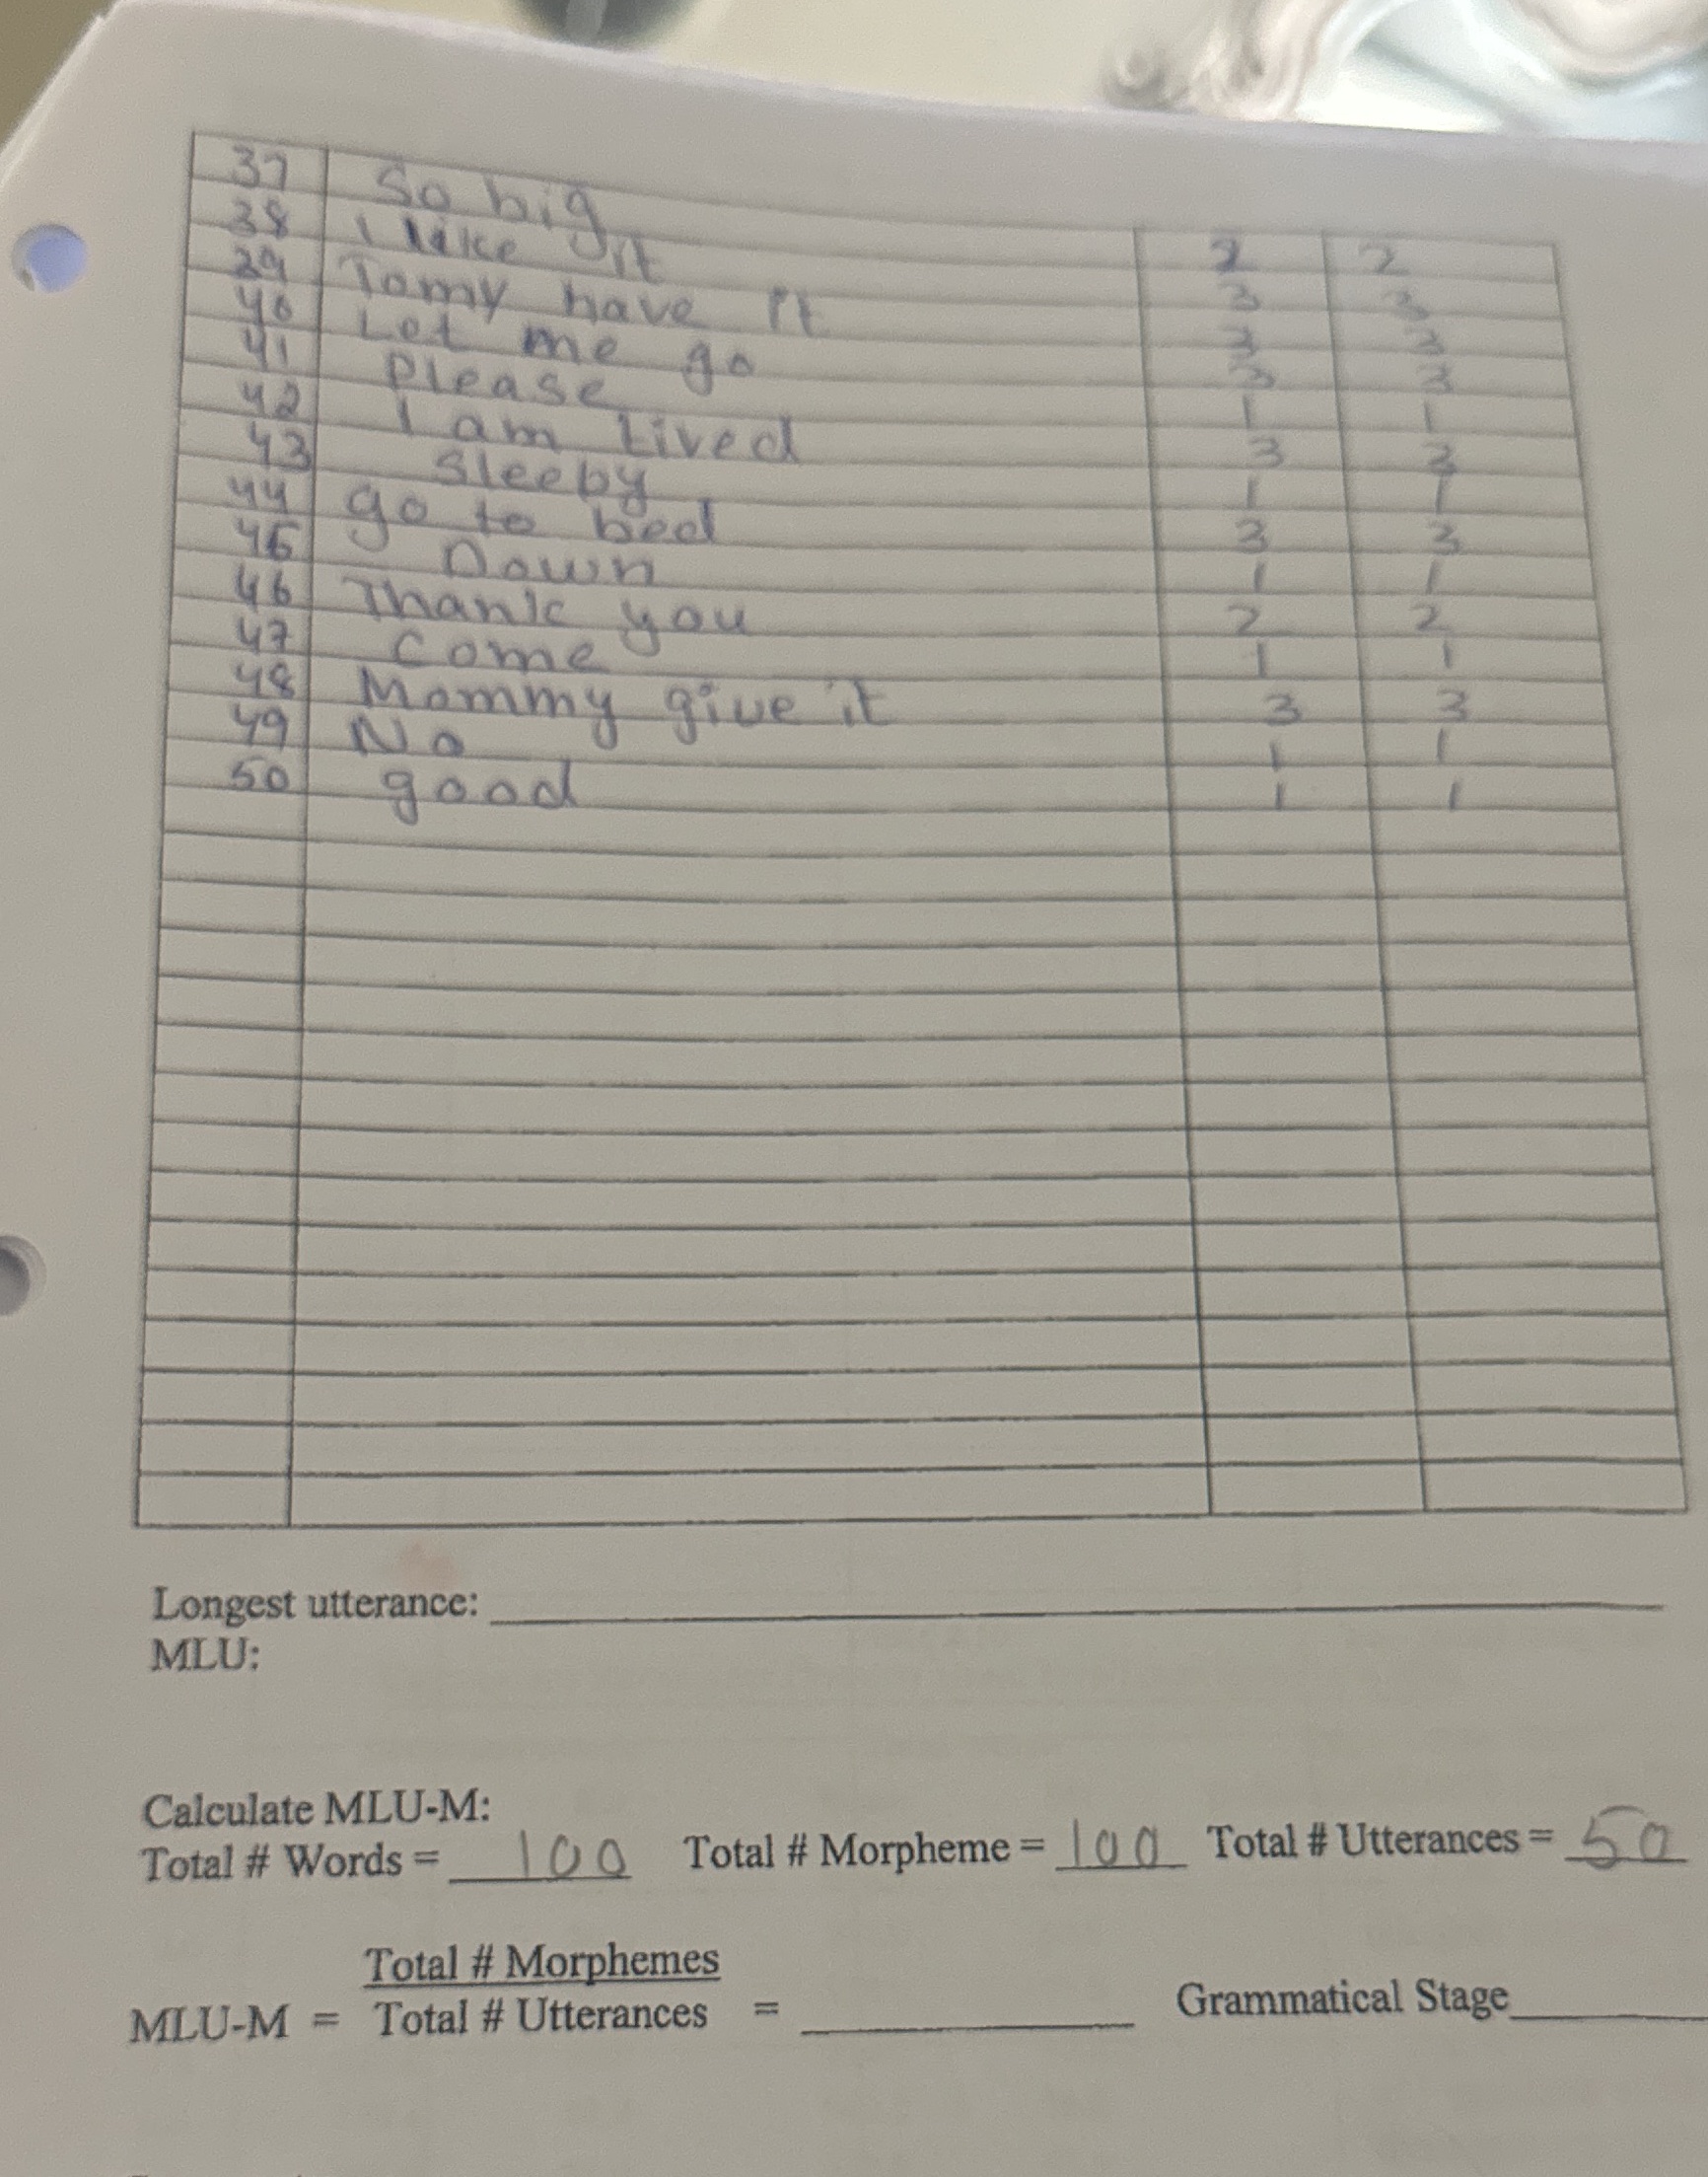 37 So big 2 2
38 I like it 3 3
39 Tomy have it 3 3
40 Let me go 3 3
41 Please 1 1
42 I am tired 3 3
43 Sleeby 1 1
44 go to bed 3 3
45 Down 1 1
46 Thank you 2 2
47 Come 1 1
48 Mommy give it 3 3
49 No 1 1
50 good 1 1
Longest utterance:
MLU:
Calculate MLU-M:
Total # Words = 100 Total # Morpheme = 100 Total # Utterances = 50
Total # Morphemes
MLU-M = Total # Utterances = Grammatical Stage